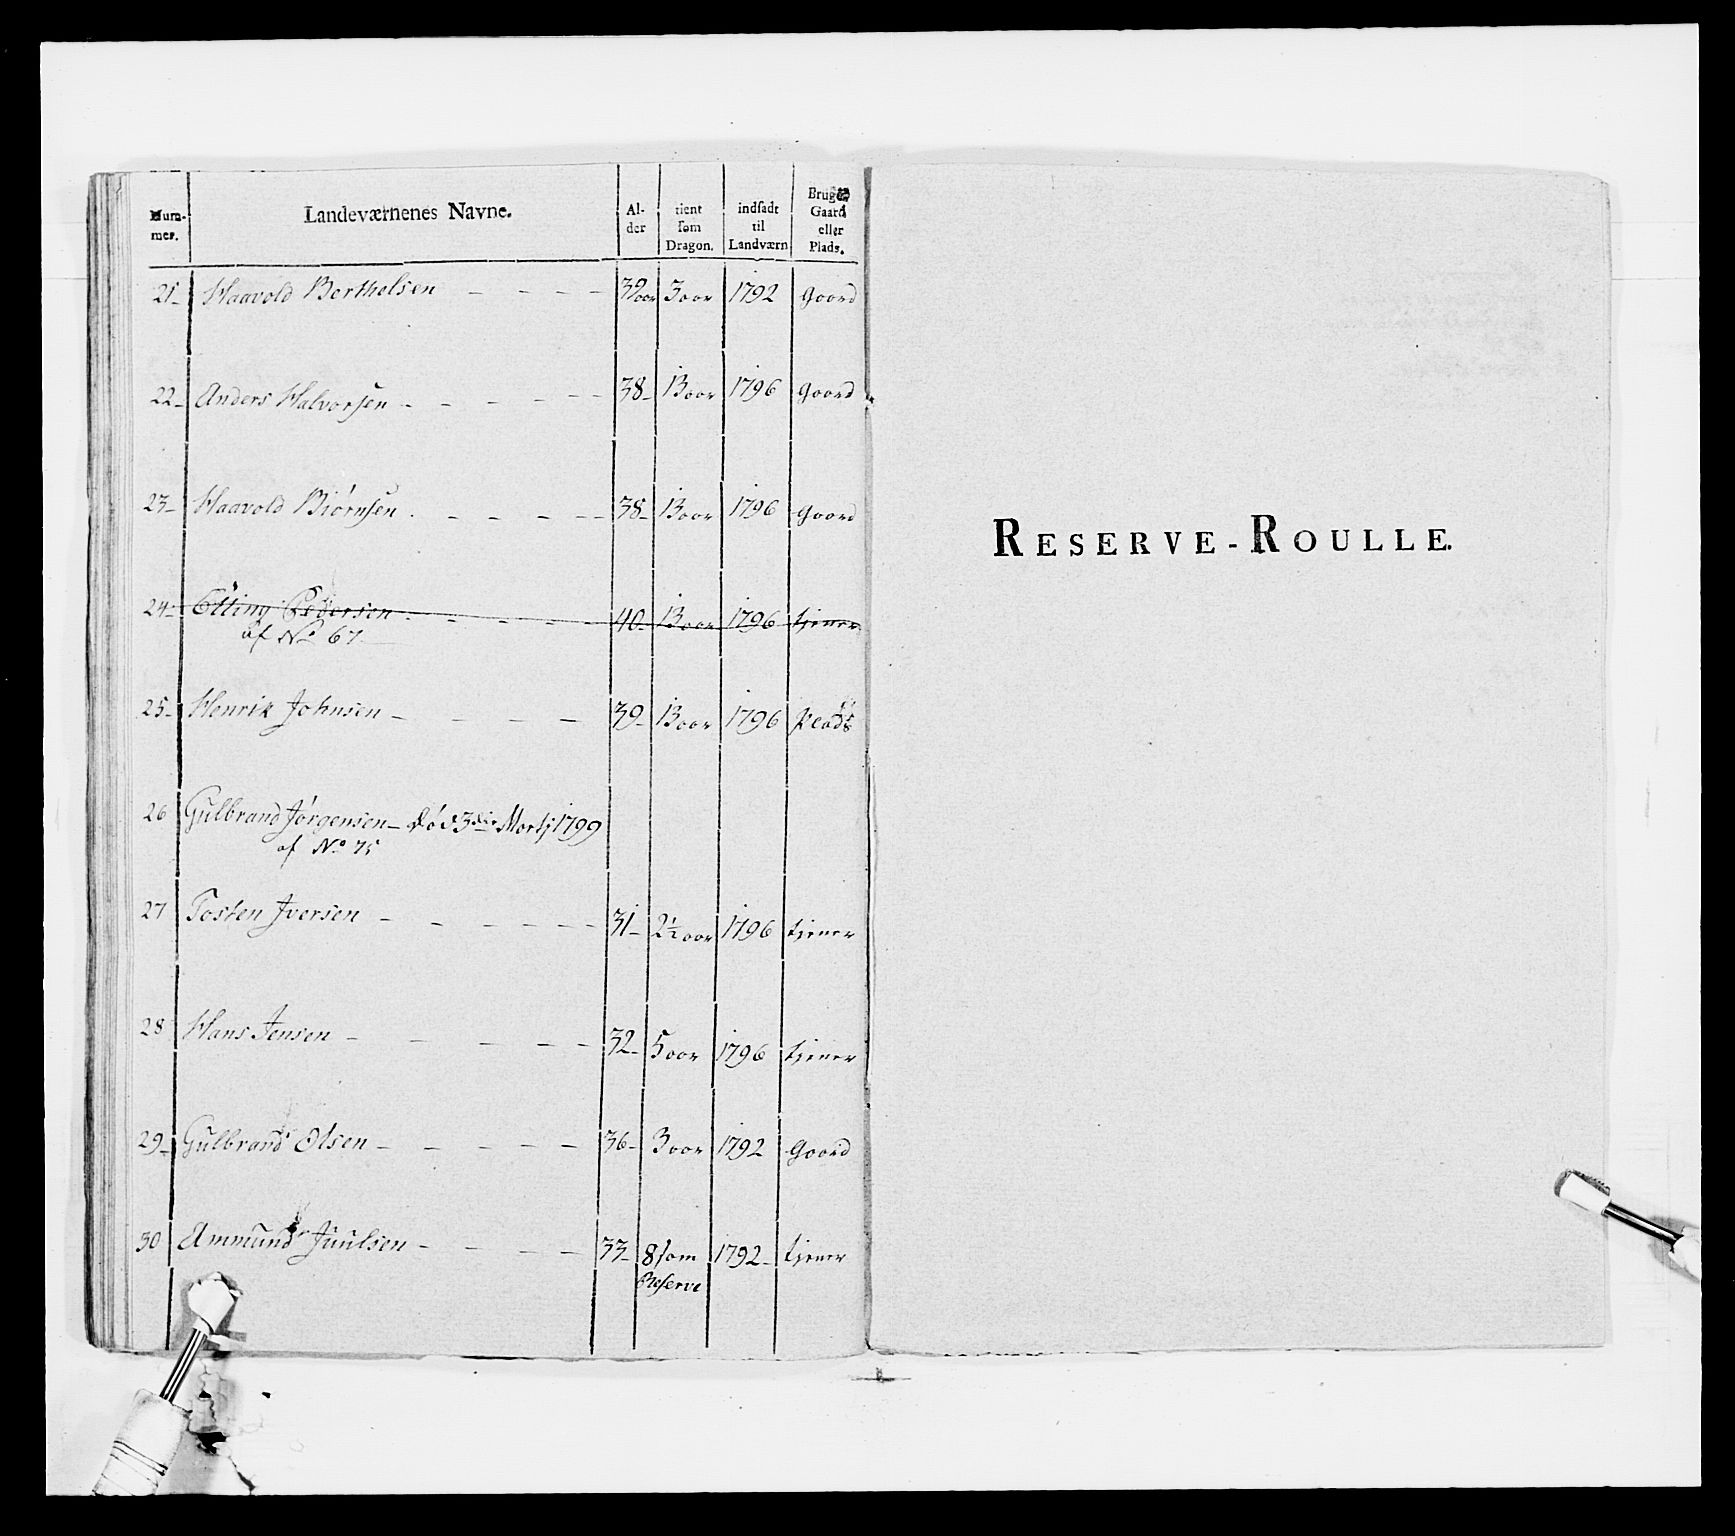 Num-
mer.
Landeværnenes Navne.
Al-
der
tient
som
Dragon.
indsadt
til
Landværn
Bruger
Gaard
eller
Plads.
21- Haavold Berthelsen - - - - 39 aar 3 aar 1792 Gaard
22- Anders Halvorsen - - - - - 38- 13 aar 1796 Gaard
23- Haavold Biørnsen - - - - - 38- 13 aar 1796 Gaard
24- Etting Pedersen - - - - 40- 13 aar 1796 tjener
af No 67
25- Henrik Johnsen - - - - 39- 13 aar 1796 Plads
26 Gulbrand Jørgensen - Død 3die Martj 1799
af No 75
27 Tosten Iversen - - - - - - 31- 2½ aar 1796 tjener
28 Hans Jensen - - - - - 32- 5 aar 1796 tjener
29- Gulbrand Olsen - - - - 36- 3 aar 1792 Gaard
30 Ammund Juulsen - - - - 33- 8 som 1792- tjener
Reserve
RESERVE-ROULLE.